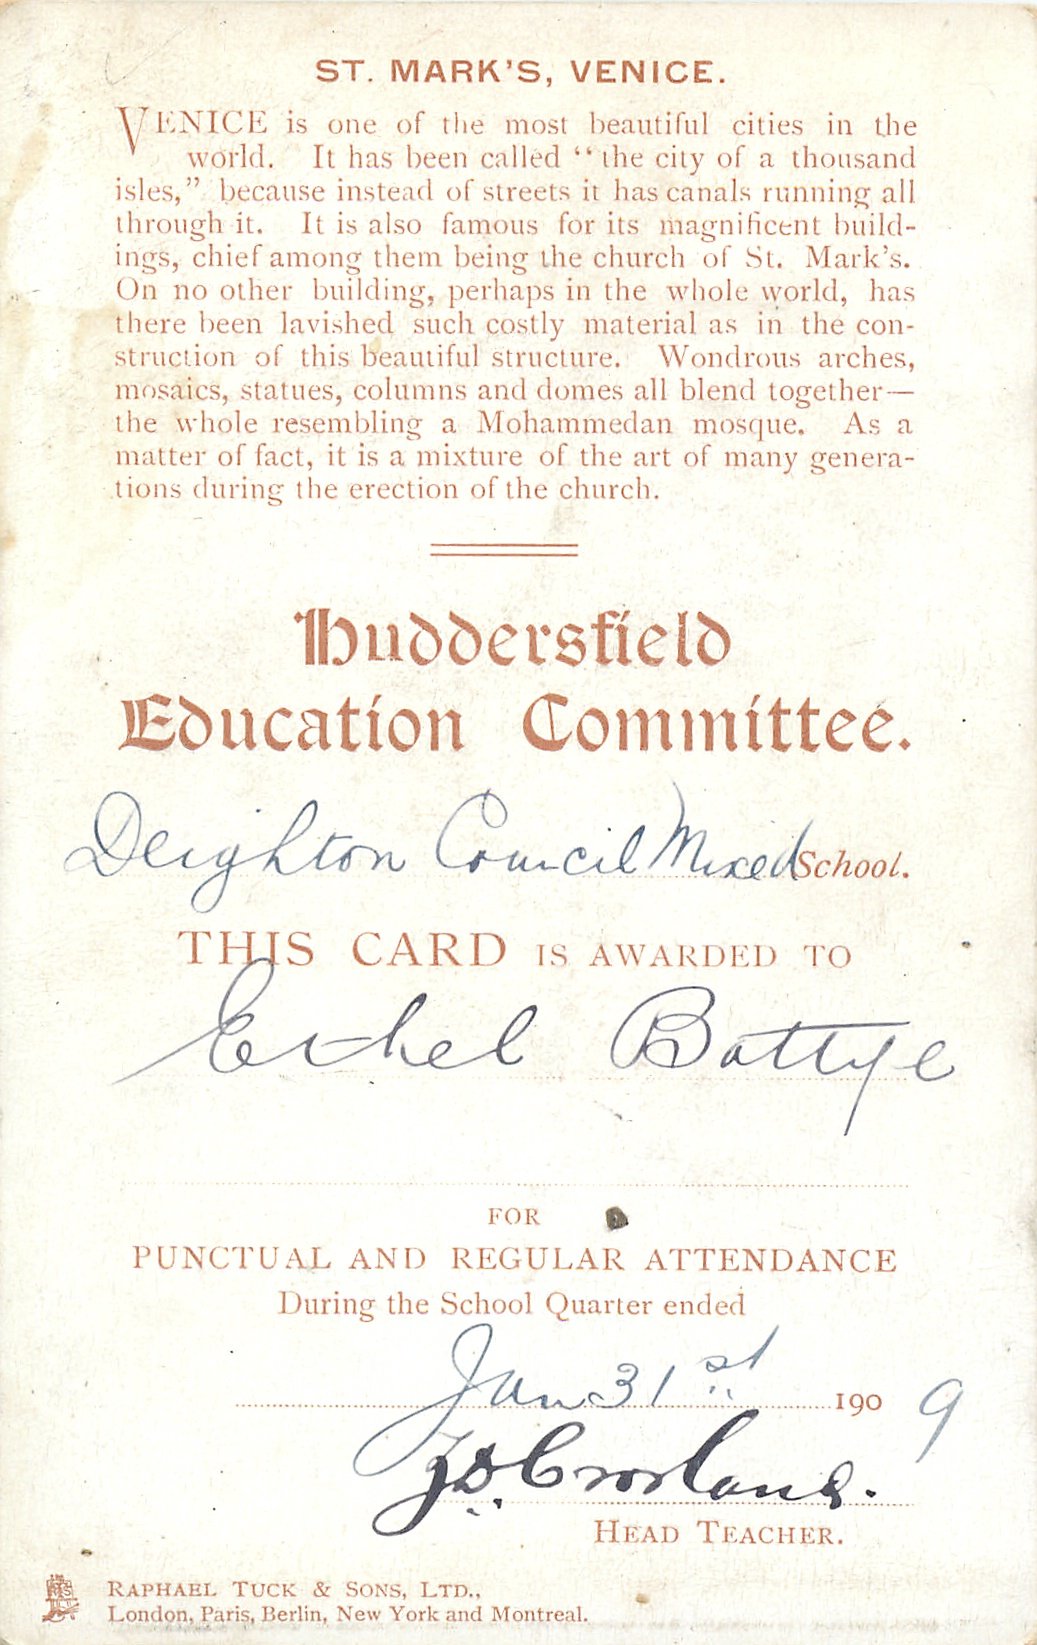 ST. MARK'S, VENICE.
VENICE is one of the most beautiful cities in the
world. It has been called "the city of a thousand
isles," because instead of streets it has canals running all
through it. It is also famous for its magnificent build-
ings, chief among them being the church of St. Mark's.
On no other building, perhaps in the whole world, has
there been lavished such costly material as in the con-
struction of this beautiful structure. Wondrous arches,
mosaics, statues, columns and domes all blend together—
the whole resembling a Mohammedan mosque. As a
matter of fact, it is a mixture of the art of many genera-
tions during the erection of the church.
Huddersfield
Education Committee.
Deighton Council Mixed School.
THIS CARD IS AWARDED TO
Ethel Battye
FOR
PUNCTUAL AND REGULAR ATTENDANCE
During the School Quarter ended
Jan 31st 1909
HEAD TEACHER.
RAPHAEL TUCK & SONS, LTD.,
London, Paris, Berlin, New York and Montreal.